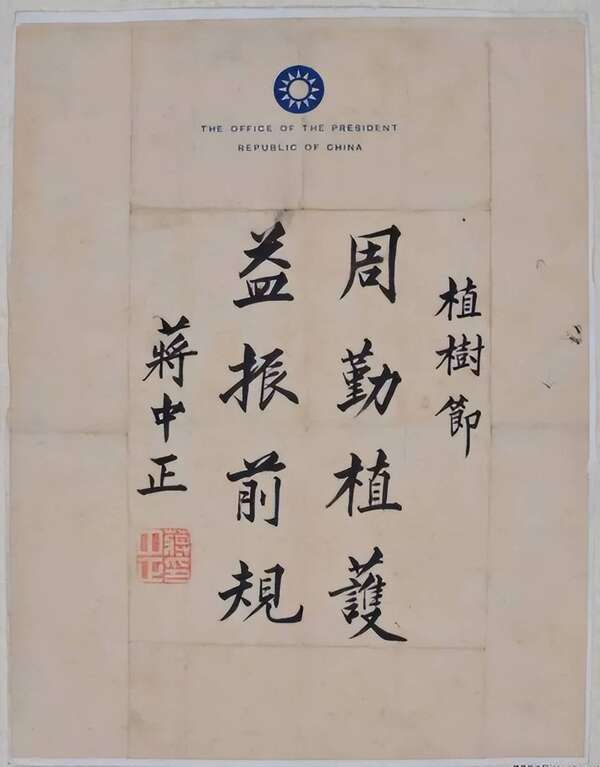 THE OFFICE OF THE PRESIDENT
REPUBLIC OF CHINA
植樹節
周勤植護
益振前規
蔣中正